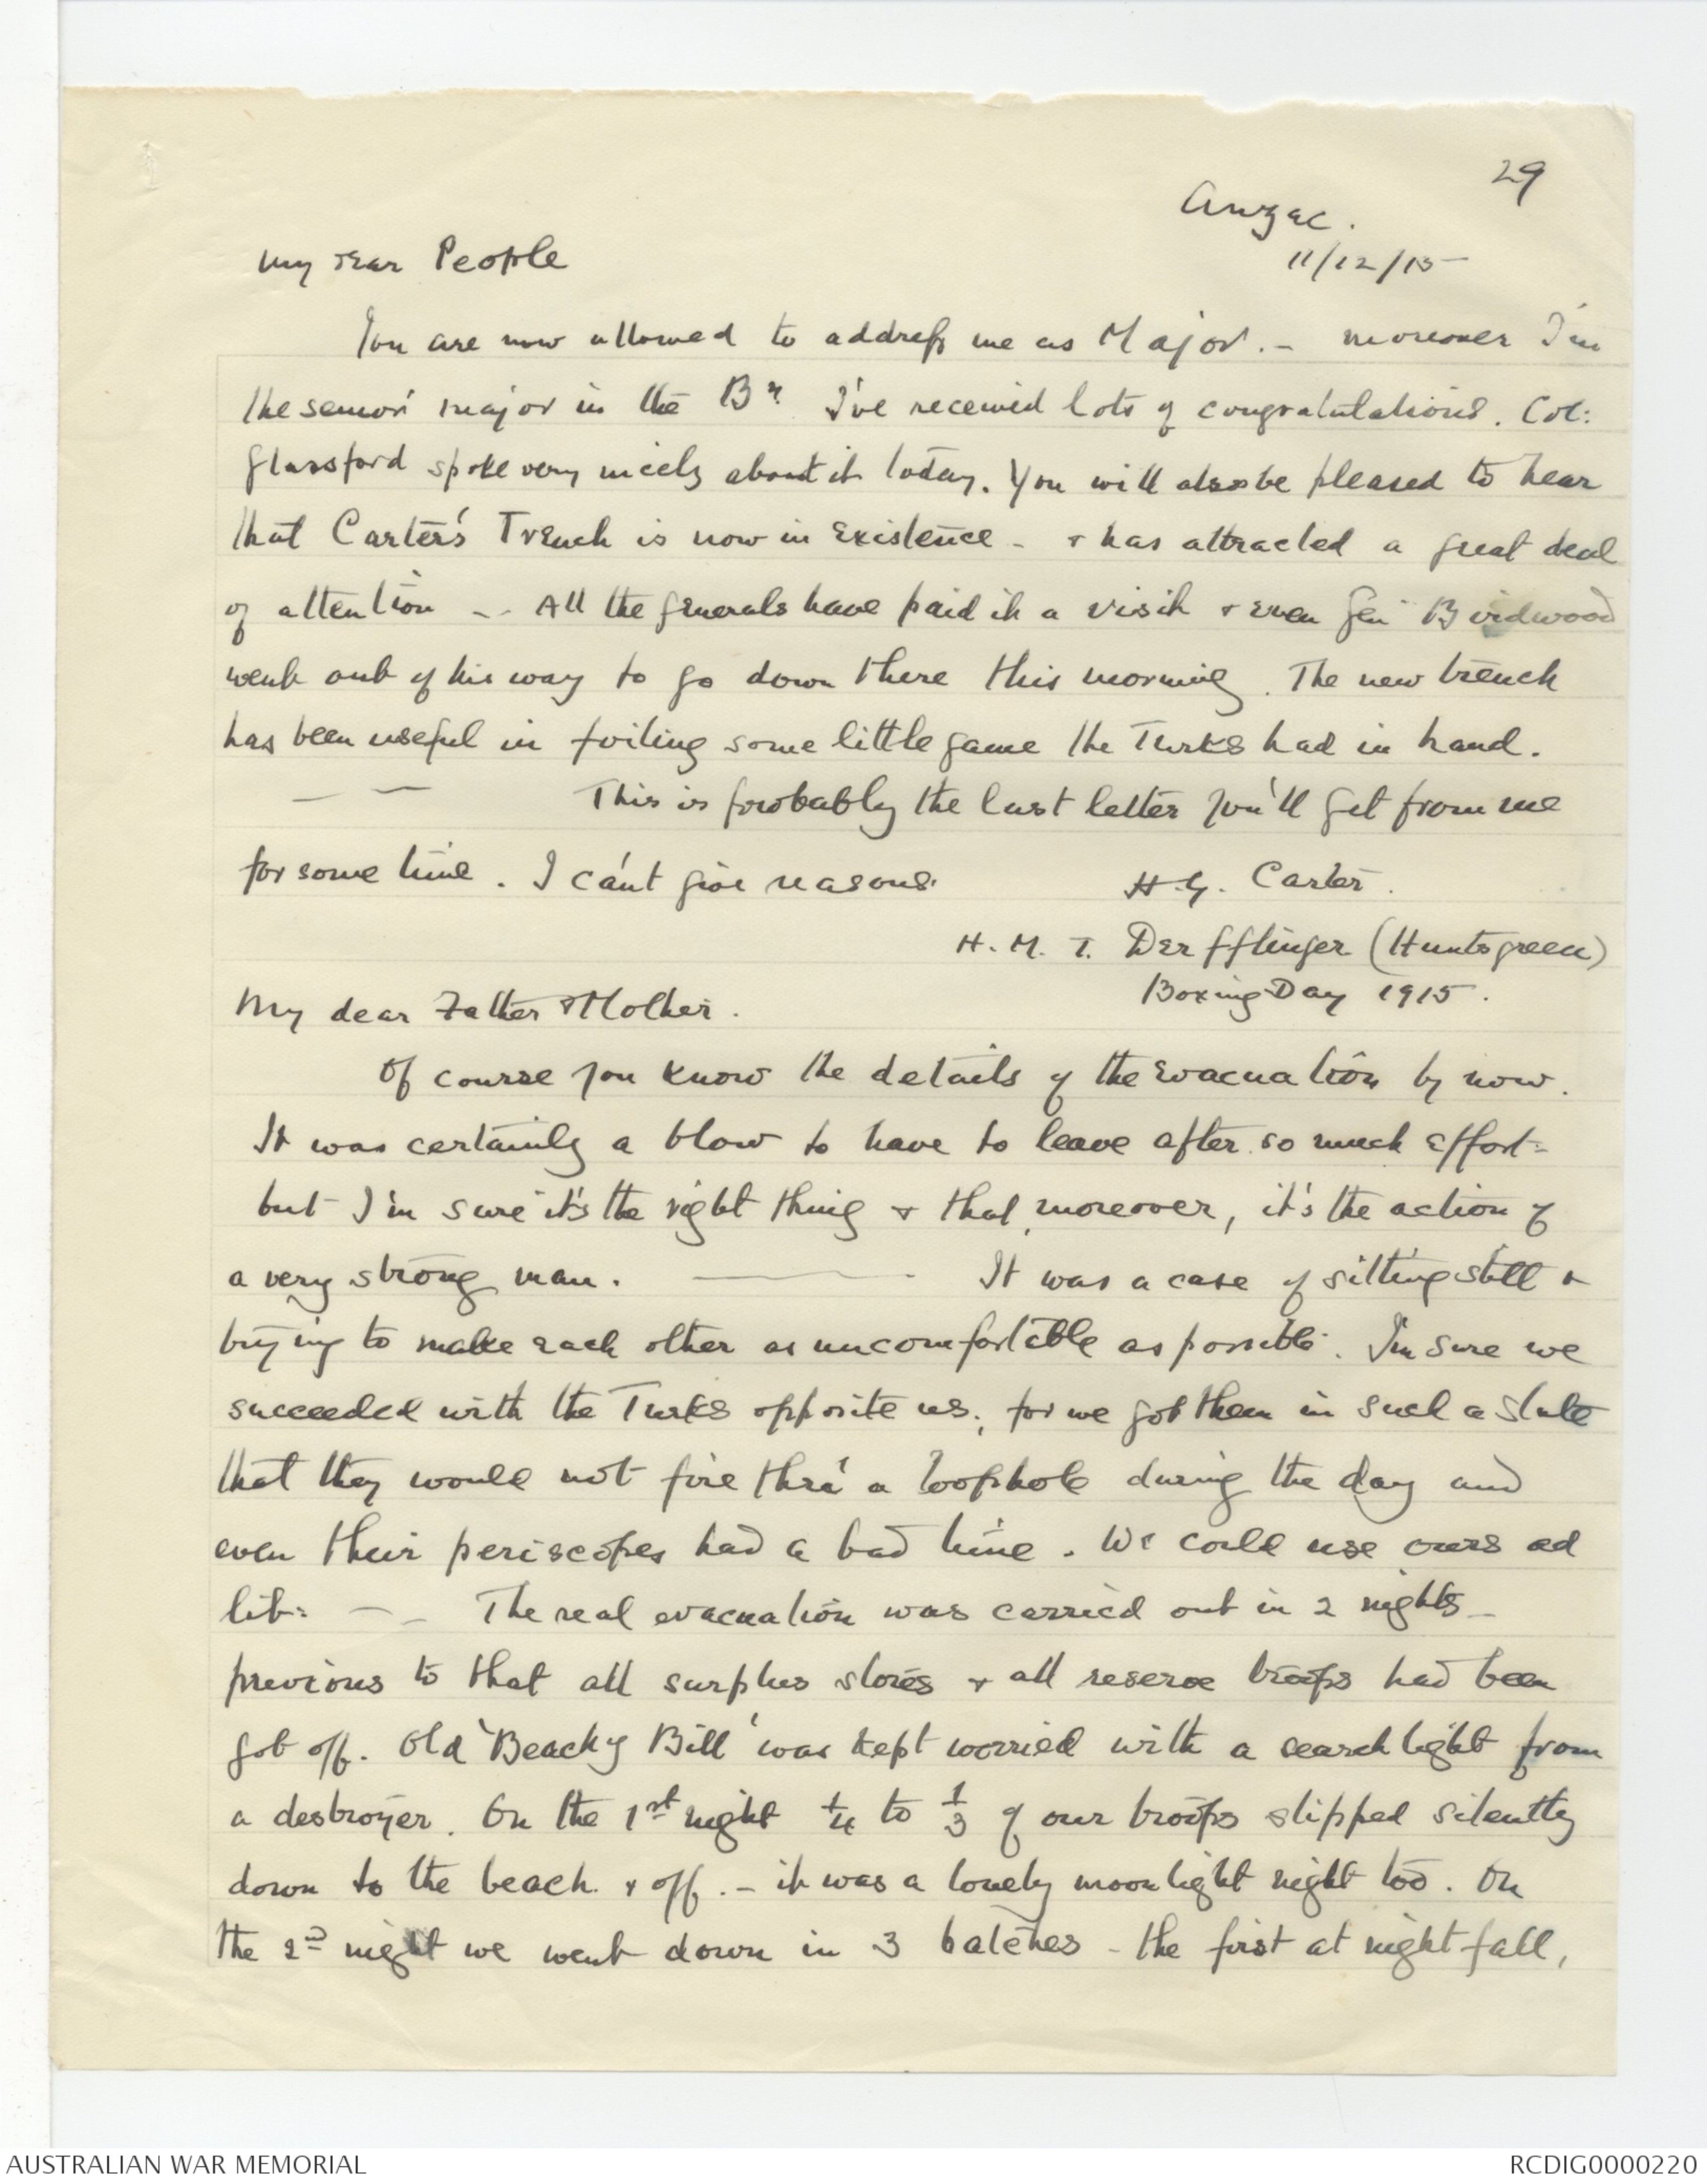 29
Anzac.
11/12/15
My dear People
You are now allowed to address me as Major. - moreover I'm
the senior major in the Bn. I've received lots of congratulations. Col:
Glassford spoke very nicely about it today. You will also be pleased to hear
that Carter's Trench is now in existence - & has attracted a great deal
of attention -- All the generals have paid it a visit & even Gen Birdwood
went out of his way to go down there this morning. The new trench
has been useful in foiling some little game the Turks had in hand.
— — This is probably the last letter you'll get from me
for some time. I can't give reasons.
H.G. Carter.
H.M.T. Derfflinger (Huntsgreen)
Boxing Day 1915.
My dear Father & Mother.
Of course you know the details of the evacuation by now.
It was certainly a blow to have to leave after so much effort-
but I'm sure it's the right thing & that, moreover, it's the action of
a very strong man. ——— It was a case of sitting still &
trying to make each other as uncomfortable as possible. I'm sure we
succeeded with the Turks opposite us, for we got them in such a state
that they would not fire thro' a loophole during the day and
even their periscopes had a bad time. We could use ours ad
lib: — - The real evacuation was carried out in 2 nights -
previous to that all surplus stores & all reserve troops had been
got off. Old 'Beachy Bill' was kept worried with a searchlight from
a destroyer. On the 1st night 1/4 to 1/3 of our troops slipped silently
down to the beach & off. - it was a lovely moonlight night too. On
the 2nd night we went down in 3 batches - the first at nightfall,
AUSTRALIAN WAR MEMORIAL
RCDIG0000220